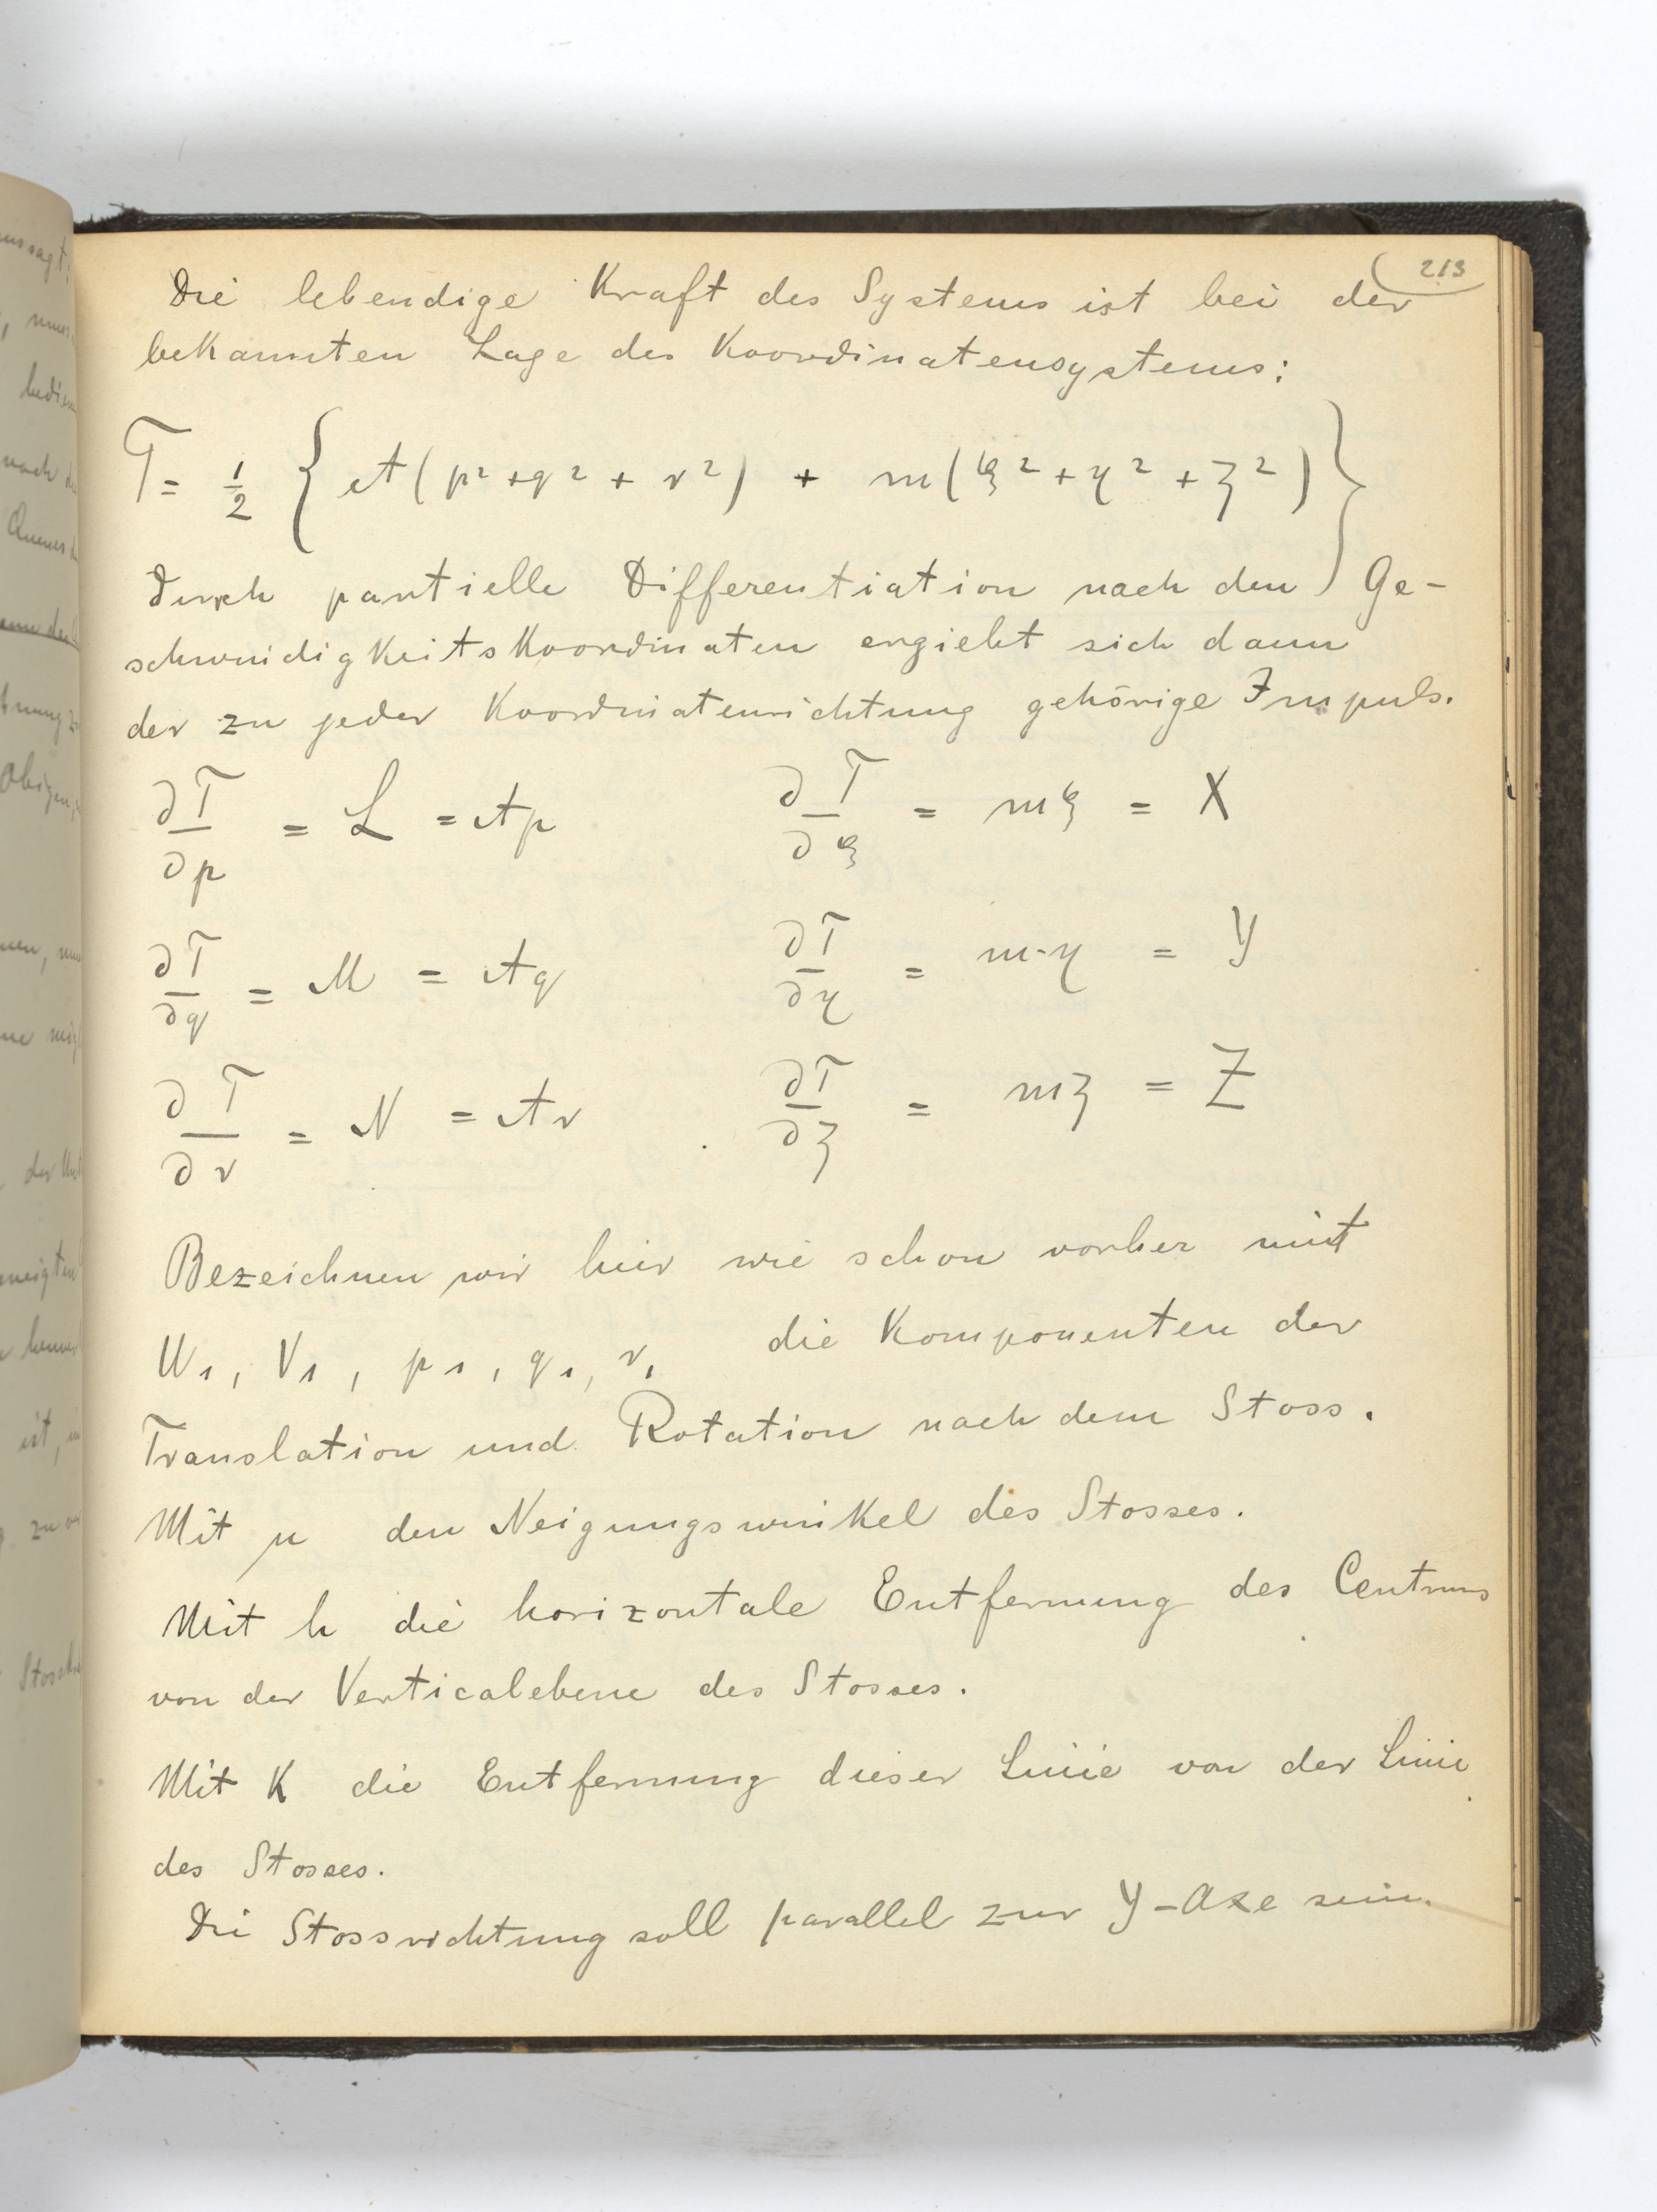 213
Die lebendige Kraft des Systems ist bei der
bekannten Lage des Koordinatensystems:
T = 1/2 { A(p² + q² + r²) + m(ξ² + η² + ζ²) }
Durch partielle Differentiation nach den Ge-
schwindigkeitskoordinaten ergiebt sich dann
der zu jeder Koordinatenrichtung gehörige Impuls.
∂T/∂p = L = Ap ∂T/∂ξ = mξ = X
∂T/∂q = M = Aq ∂T/∂η = m·η = Y
∂T/∂r = N = Ar ∂T/∂ζ = mζ = Z
Bezeichnen wir hier wie schon vorher mit
U₁, V₁, p₁, q₁, r₁ die Komponenten der
Translation und Rotation nach dem Stoss.
Mit μ den Neigungswinkel des Stosses.
Mit h die horizontale Entfernung des Centrums
von der Verticalebene des Stosses.
Mit K die Entfernung dieser Linie von der Linie
des Stosses.
Die Stossrichtung soll parallel zur Y-Axe sein.